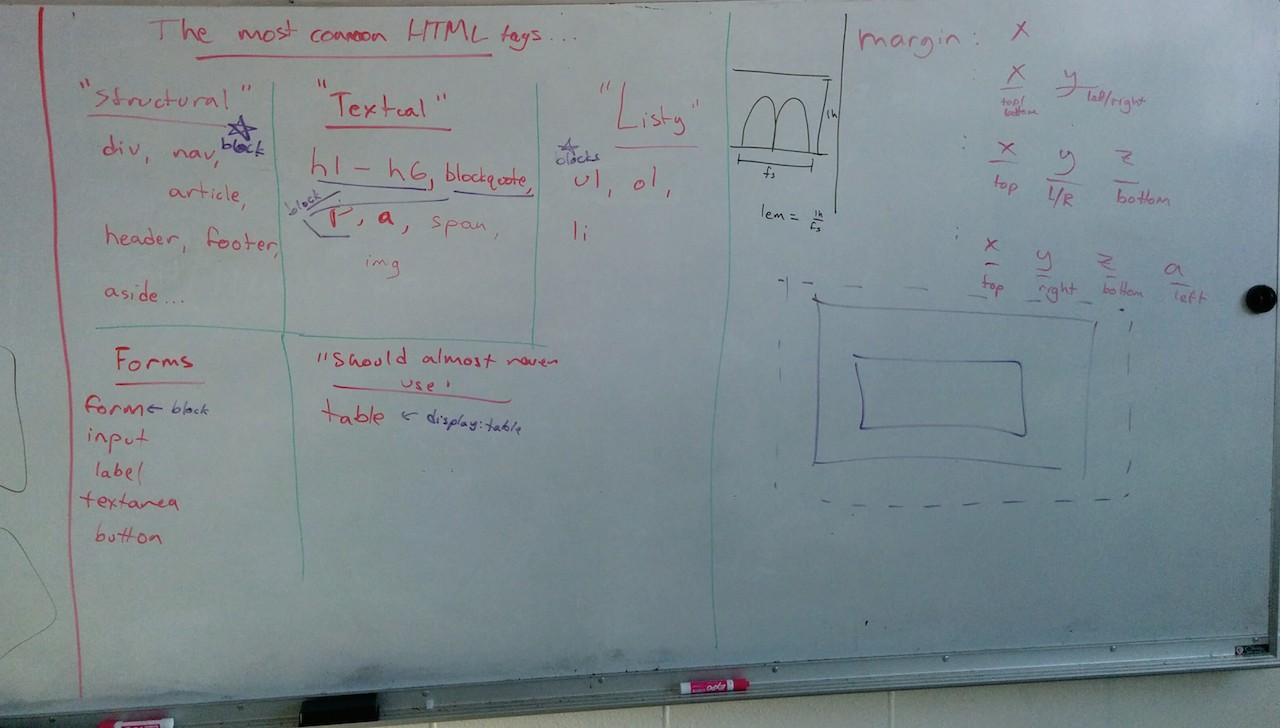 The most common HTML tags...
"Structural"
block
div, nav,
article,
header, footer,
aside...
"Textual"
h1 - h6, blockquote,
block
p, a, span,
img
"Listy"
blocks
ul, ol,
li
Forms
form ← block
input
label
textarea
button
"Should almost never
use"
table ← display:table
lh
fs
1em = lh
fs
margin: x
: x y
top/bottom left/right
: x y z
top L/R bottom
: x y z a
top right bottom left
EXPO